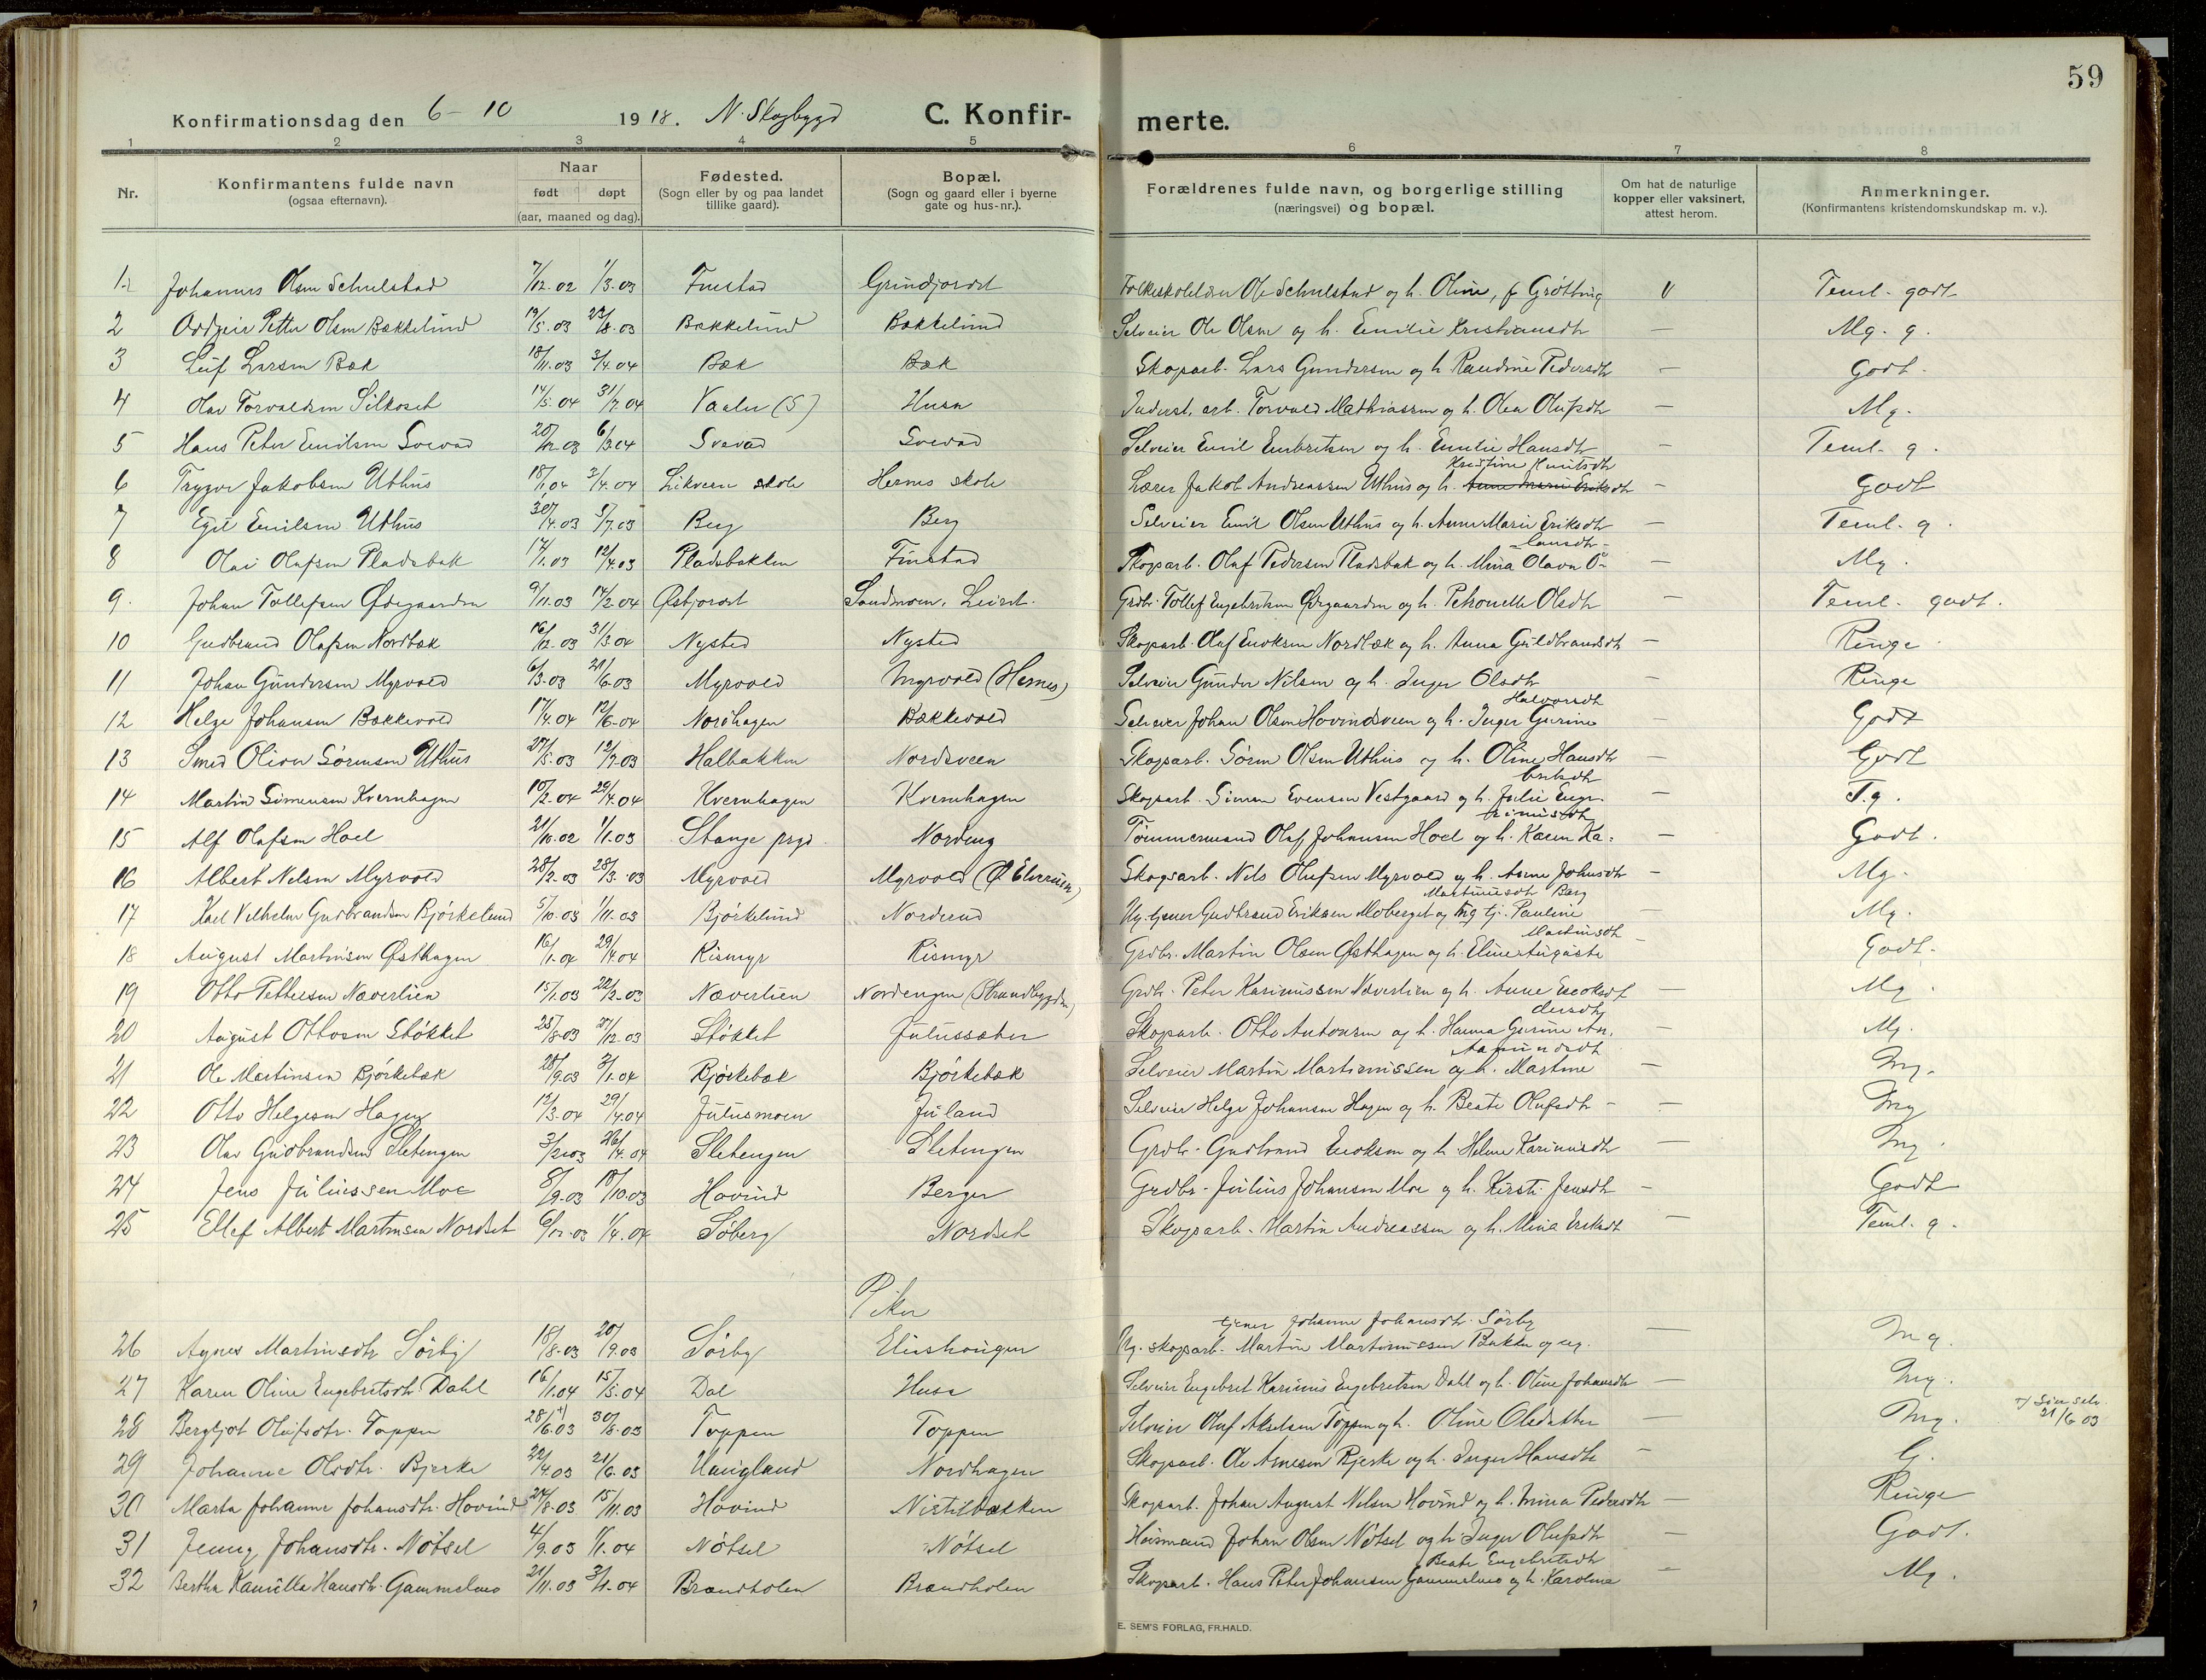 59
Konfirmationsdag den 6-10 1918. N. Skogbygd C. Konfir- merte.
1 2 3 4 5 6 7 8
Nr. Konfirmantens fulde navn (ogsaa efternavn). Naar født døpt (aar, maaned og dag). Fødested. (Sogn eller by og paa landet tillike gaard). Bopæl. (Sogn og gaard eller i byerne gate og hus-nr.). Forældrenes fulde navn, og borgerlige stilling (næringsvei) og bopæl. Om hat de naturlige kopper eller vaksinert, attest herom. Anmerkninger. (Konfirmantens kristendomskundskap m. v.).
1 Johannes Olsen Schulstad 7/12.02 1/3.03 Finstad Grindjordet Ole Schulstad og h. Oline, f. Grøtting V Teml. godt
2 Oddgeir Petter Olsen Bækkelund 19/5.03 23/8.03 Bækkelund Bækkelund Selveier Ole Olsen og h. Emilie Kristiansdtr — Mg. g.
3 Leif Larsen Bæk 18/11.03 3/4.04 Bæk Bæk Skogsarb. Lars Gundersen og h. Randine Pedersdtr — Godt.
4 Olav Torvaldsen Silkoset 14/5.04 31/7.04 Vaaler (S) Husa Indust. arb. Torvald Mathiassen og h. Olea Olufsdtr — Mg.
5 Hans Peter Emilsen Svevad 20/12.03 6/3.04 Svevad Svevad Selveier Emil Embretsen og h. Emilie Hansdtr — Teml. g.
6 Trygve Jakobsen Uthus 18/1.04 3/4.04 Likvern skole Hernes skole Lærer Jakob Andreassen Uthus og h. Anne Marie Eriksdtr Kristine Knutsdtr — Godt
7 Egil Emilsen Uthus 30/4.03 5/7.03 Berg Berg Selveier Emil Olsen Uthus og h. Anne Marie Eriksdtr — Teml. g.
8 Olai Olafsen Pladsbak 17/1.03 12/4.03 Pladsbakken Finstad Skogsarb. Oluf Pedersen Pladsbak og h. Mina Olava O- lausdtr — Mg.
9. Johan Tollefsen Ødegaarden 9/11.03 14/2.04 Østjordet Sandmoen, Leiret. Grdbr. Tollef Engebretsen Ødegaarden og h. Petronelle Olsdtr — Teml. godt.
10 Gudbrand Olafsen Nordbæk 16/12.03 31/3.04 Nysted Nysted Skogsarb. Olaf Enoksen Nordbæk og h. Anna Guldbrandsdtr — Ringe
11 Johan Gundersen Myrvold 6/3.03 21/6.03 Myrvold Myrvold (Hernes) Selveier Gunder Nilsen og h. Inger Olsdtr — Ringe
12 Helge Johansen Bækkevold 17/4.04 12/6.04 Nordhagen Bækkevold Selveier Johan Olsen Hovindsveen og h. Inger Gurine Halvorsdtr — Godt
13 Smed Oliver Sørensen Uthus 27/5.03 12/7.03 Halbakken Nordsveen Skogsarb. Søren Olsen Uthus og h. Oline Hansdtr — Godt
14 Martin Simensen Kvernhagen 10/2.04 24/4.04 Kvernhagen Kvernhagen Skogsarb. Simen Evensen Vestgaard og h. Julie Enge- bretsdtr — T.g.
15 Alf Olafsen Hoel 21/10.02 1/1.03 Stange prgd. Nordeng Tømmermand Olaf Johansen Hoel og h. Karen Ka- rinusdtr — Godt.
16 Albert Nilsen Myrvold 28/2.03 28/3.03 Myrvold Myrvold (Ø. Elverum) Skogsarb. Nils Olufsen Myrvold og h. Anne Johnsdtr — Mg.
17 Karl Vilhelm Gudbrandsen Bjørkelund 5/10.03 1/11.03 Bjørkelund Norderud Ug. tjener Gudbrand Eriksen Moberget og Ug. tj. Pauline Martinusdtr Berg — Mg.
18 August Martinsen Østhagen 16/1.04 24/4.04 Rismyr Rismyr Grdbr. Martin Olsen Østhagen og h. Eline Auguste Martinsdtr — Godt.
19 Otto Pettersen Næverlien 15/1.03 22/2.03 Næverlien Nordengen (Strandbygden) Grdbr. Peter Karinussen Næverlien og h. Anne Enoksdt — Mg.
20 August Ottosen Støkket 25/8.03 27/12.03 Støkket Julussæter Skogsarb. Otto Antonsen og h. Hanna Gurine An- dersdtr — Mg.
21 Ole Martinsen Bjørkebæk 28/9.03 3/1.04 Bjørkebæk Bjørkebæk Selveier Martin Martinussen og h. Martine Aamundsdt — Mg.
22 Otto Helgesen Hagen 12/3.04 24/4.04 Julusmoen Juland Selveier Helge Johansen Hagen og h. Beate Olufsdtr — Mg
23 Olav Gudbrandsen Sletengen 3/12.03 24/4.04 Sletengen Sletengen Grdbr. Gudbrand Enoksen og h. Helene Karinusdtr — Mg.
24 Jens Juliussen Moe 8/9.03 18/10.03 Hovind Berger Grdbr. Julius Johansen Moe og h. Kirsti Jensdtr — Godt
25 Ellef Albert Martinsen Nordset 6/12.03 1/4.04 Søberg Nordset Skogsarb. Martin Andreassen og h. Mina Eriksdt — Teml. g.
Piker
26 Agnes Martinsdtr Sørby 18/8.03 20/9.03 Sørby Ug. skogsarb. Martin Martinussen Bakken og ug. tjener Johanne Johansdtr. Sørby — Mg.
27 Karen Oline Engebretsdtr. Dahl 16/1.04 15/5.04 Dal Husa Selveier Engebret Karinus Engebretsen Dahl og h. Oline Johansdtr — Mg.
28 Bergljot Olufsdtr. Toppen 28/6.03 +) 30/8.03 Toppen Toppen Selveier Oluf Akselsen Toppen og h. Oline Olsdatter Mg. 21/6 03
29 Johanne Olsdtr. Bjerke 22/4.03 21/6.03 Haugland Nordhagen Skogsarb. Ole Arnesen Bjerke og h. Inger Hansdtr — G.
30 Marta Johanne Johansdtr. Hovind 24/8.03 15/11.03 Hovind Nistilbakken Skogsarb. Johan August Nilsen Hovind og h. Mina Pedersdtr — Ringe
31 Jenny Johansdtr. Nötsel 4/9.03 1/1.04 Nötsel Nötsel Husmand Johan Olsen Nötsel og h. Inger Olufsdtr — Godt.
32 Bertha Kamilla Hansdtr. Gammelmo 21/11.03 3/1.04 Brændholen Brændholen Skogsarb. Hans Peter Johansen Gammelmo og h. Karoline Beate Engebretsdtr — Mg.
E. SEM'S FORLAG, FR.HALD.